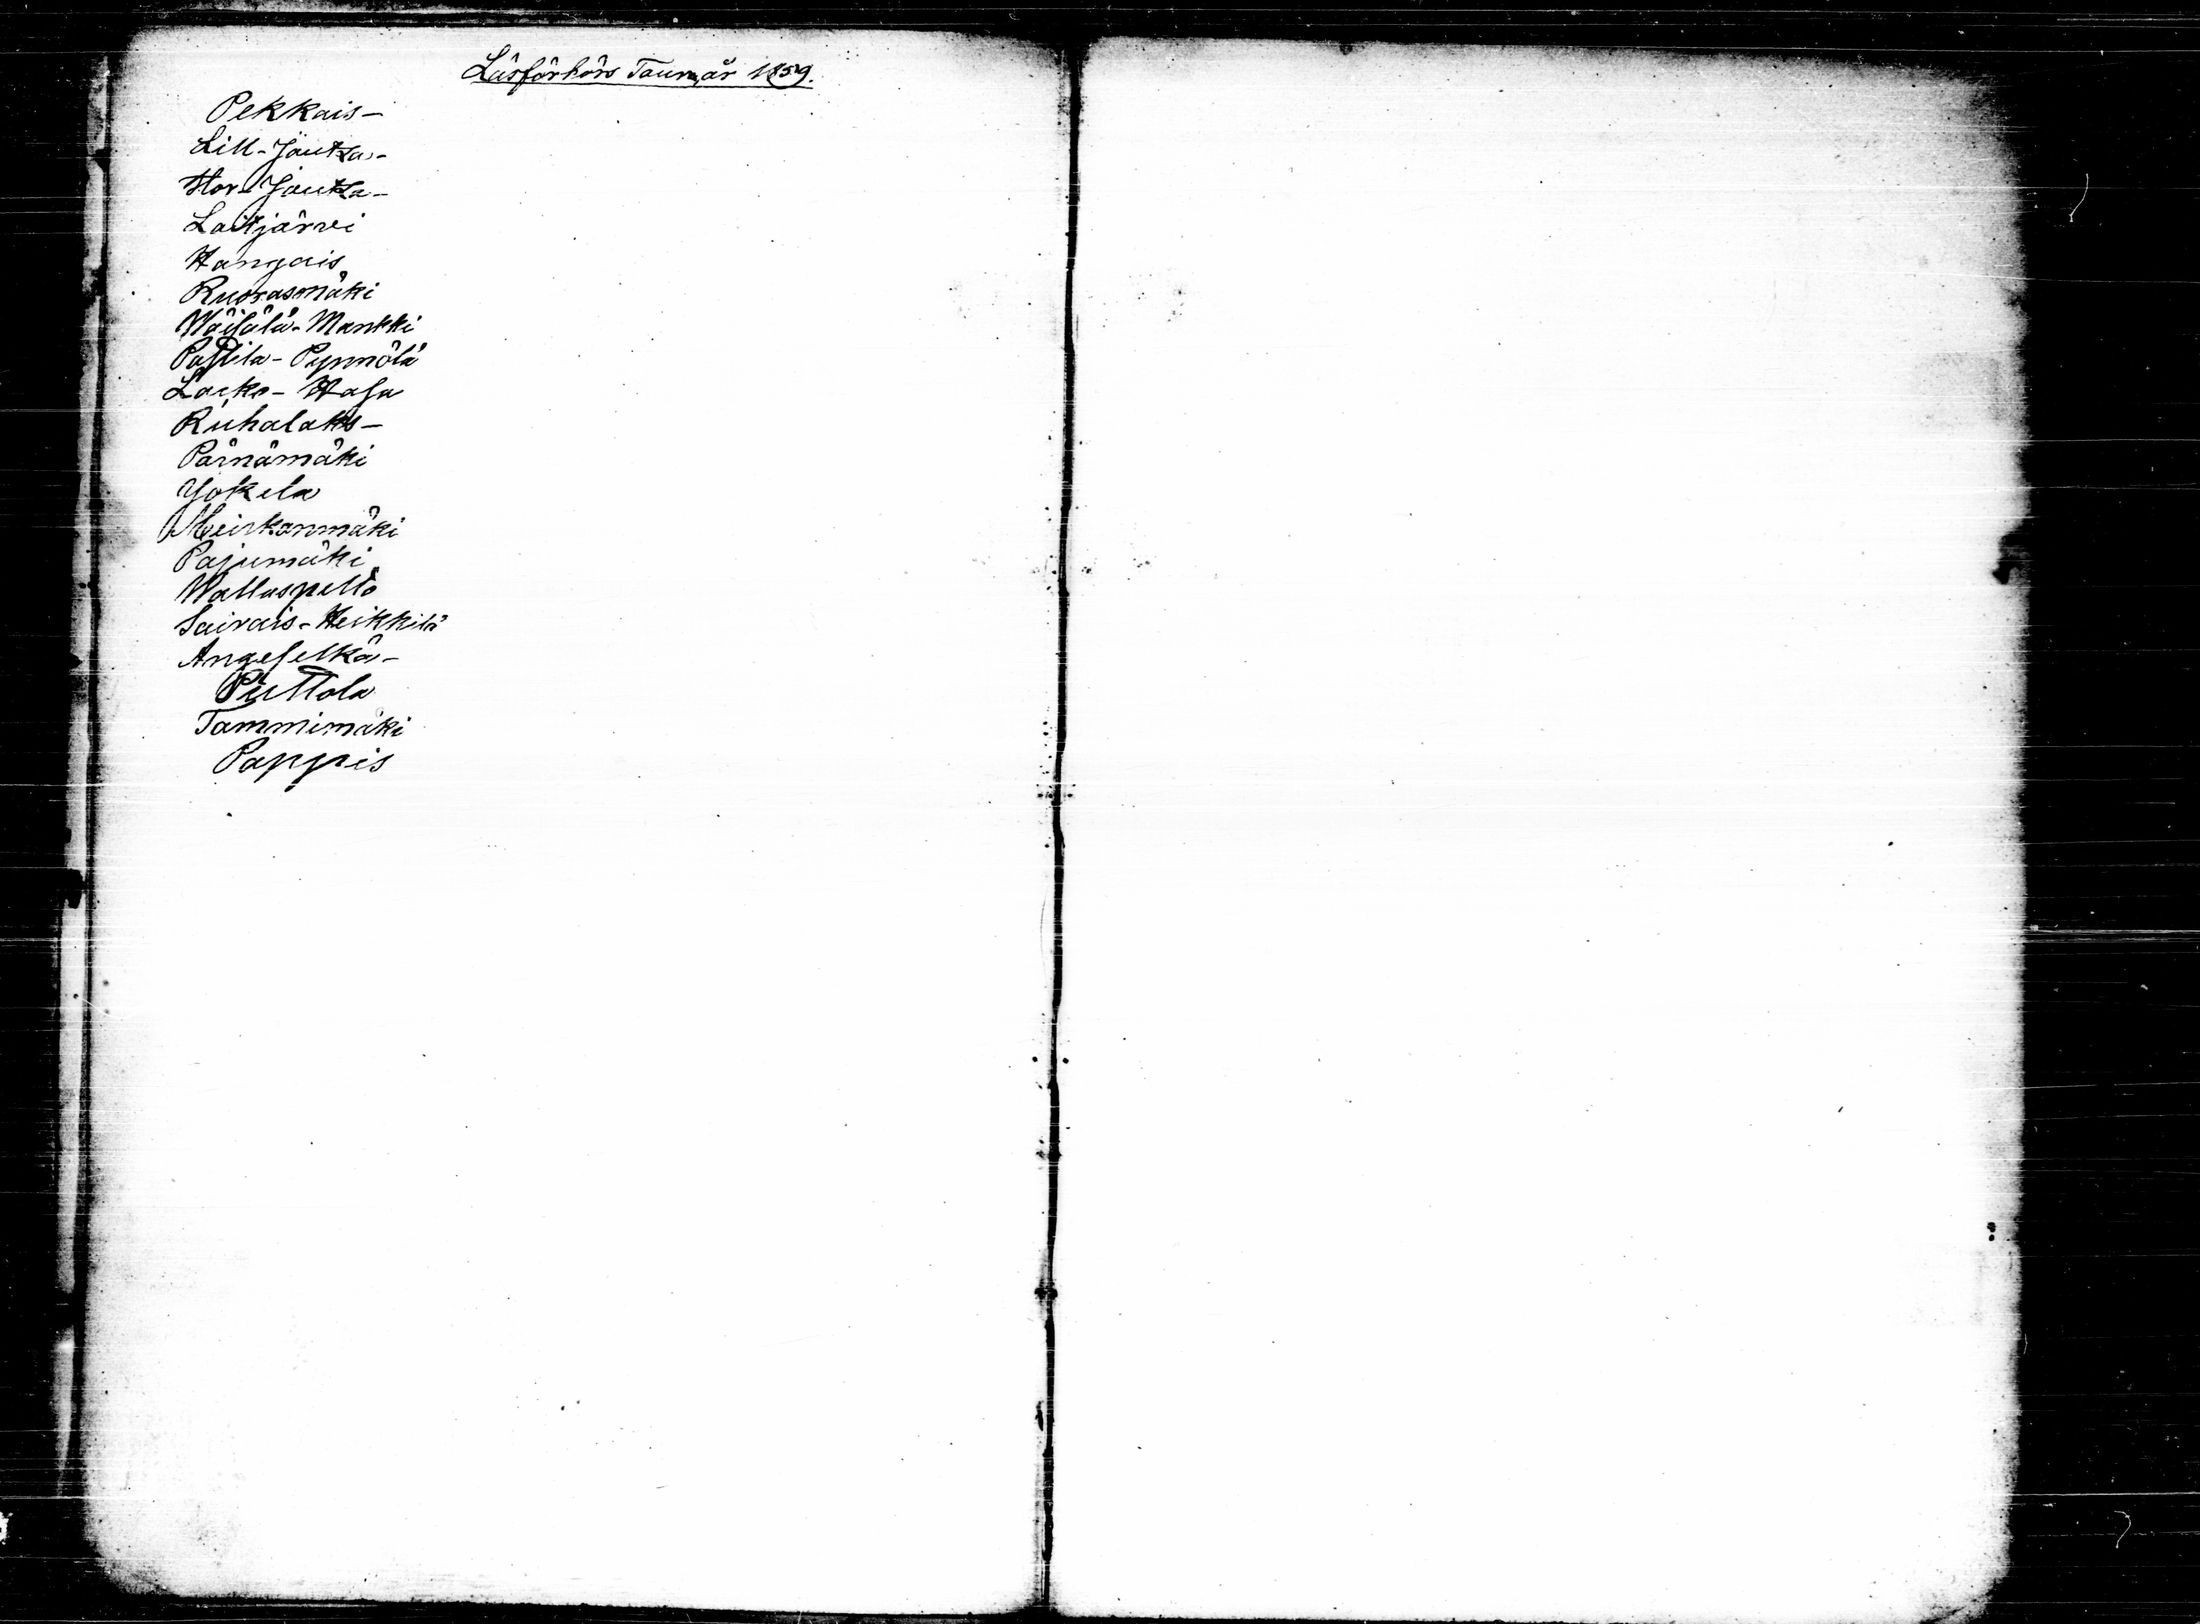 Läsförhörs Tour, år 1859.
Pekkais-
Lill-Jäutka-
Stor-Jäutka-
Laitjärwi
Hangais
Ruonasmäki
Wäisälä-Mankki
Paßila-Pynnölä
Hasa
Riihalaks-
Pärnämäki
Jokela
Meiskanmäki
Pajumäki
Wallaspelto
Sairais-Heikkilä
Angeselkä-
Puttola
Tammimäki
Pappis